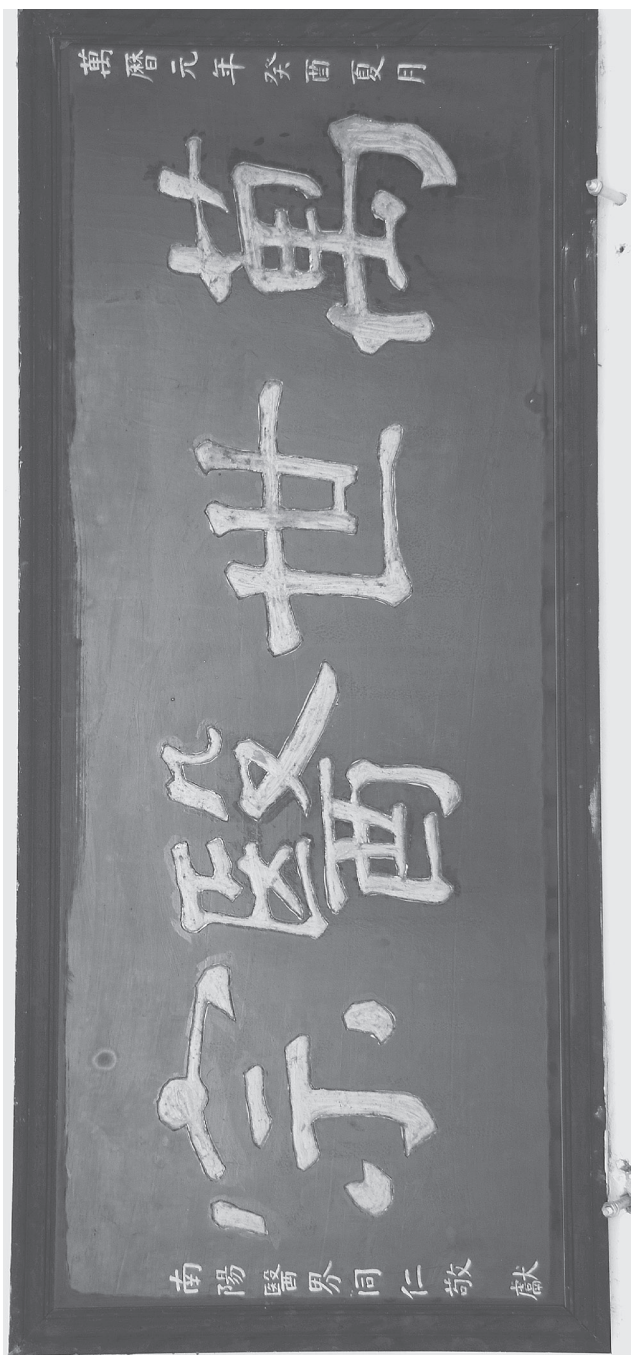 萬曆元年癸酉夏月
萬世醫宗
南陽醫界同仁敬獻